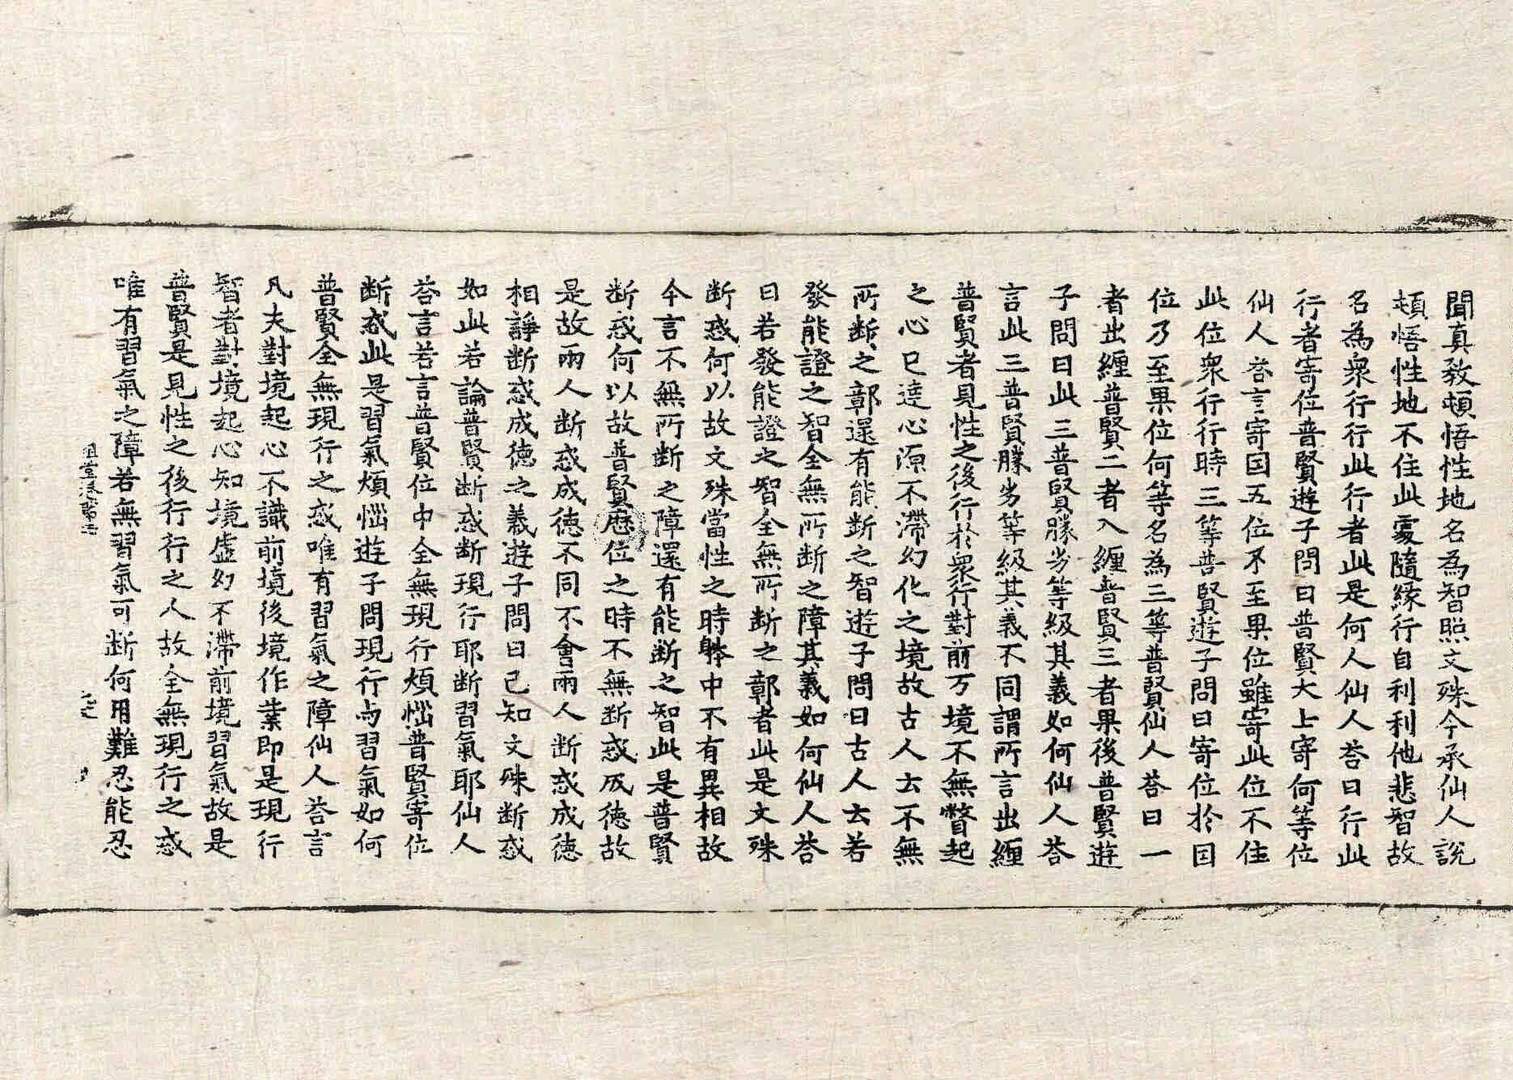 聞真教頓悟性地名為智照文殊今承仙人說
頓悟性地不住此處隨緣行自利利他悲智故
名為衆行行此行者此是何人仙人荅曰行此
行者寄位普賢遊子問曰普賢大士寄何等位
仙人荅言寄囙五位不至果位雖寄此位不住
此位衆行行時三等普賢遊子問曰寄位於囙
位乃至果位何等名為三等普賢仙人荅曰一
者出纏普賢二者入纏普賢三者果後普賢遊
子問曰此三普賢勝劣等級其義如何仙人荅
言此三普賢勝劣等級其義不同謂所言出纏
普賢者見性之後行於衆行對前万境不無瞥起
之心已達心源不滯幻化之境故古人云不無
所断之鄣還有能断之智遊子問曰古人云若
發能證之智全無所断之障其義如何仙人荅
曰若發能證之智全無所断之鄣者此是文殊
断惑何以故文殊當性之時躰中不有異相故
今言不無所断之障還有能断之智此是普賢
断惑何以故普賢歷位之時不無断惑成德故
是故兩人断惑成德不同不會兩人断惑成德
相諍断惑成德之義遊子問曰已知文殊断惑
如此若論普賢断惑断現行耶断習氣耶仙人
荅言若言普賢位中全無現行煩惱普賢寄位
断惑此是習氣煩惱遊子問現行与習氣如何
普賢全無現行之惑唯有習氣之障仙人荅言
凡夫對境起心不識前境後境作業即是現行
智者對境起心知境虛幻不滯前境習氣故是
普賢是見性之後行行之人故全無現行之惑
唯有習氣之障若無習氣可断何用難忍能忍
祖堂